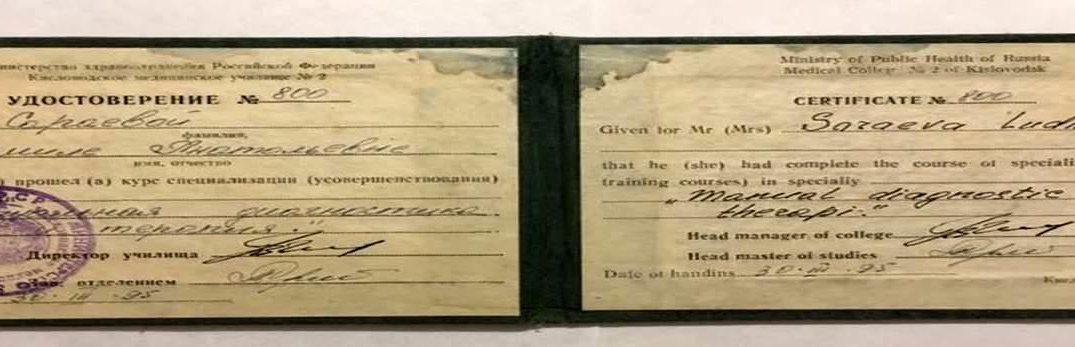 Министерство здравоохранения Российской Федерации
Кисловодское медицинское училище № 2
УДОСТОВЕРЕНИЕ № 800
Сараевой
фамилия,
миле Анатольевне
имя, отчество
) прошел (а) курс специализации (усовершенствования)
диагностика.
терапия."
Директор училища
Зав. отделением
30 · III · 95
Ministry of Public Health of Russia
Medical College № 2 of Kislovodsk
CERTIFICATE № 800
Given for Mr (Mrs) Saraeva Lud
that he (she) had complete the course of speciali
training courses) in specialiy
„Manual diagnostic
therapi."
Head manager of college
Head master of studies
Date of handins 30 · III · 95